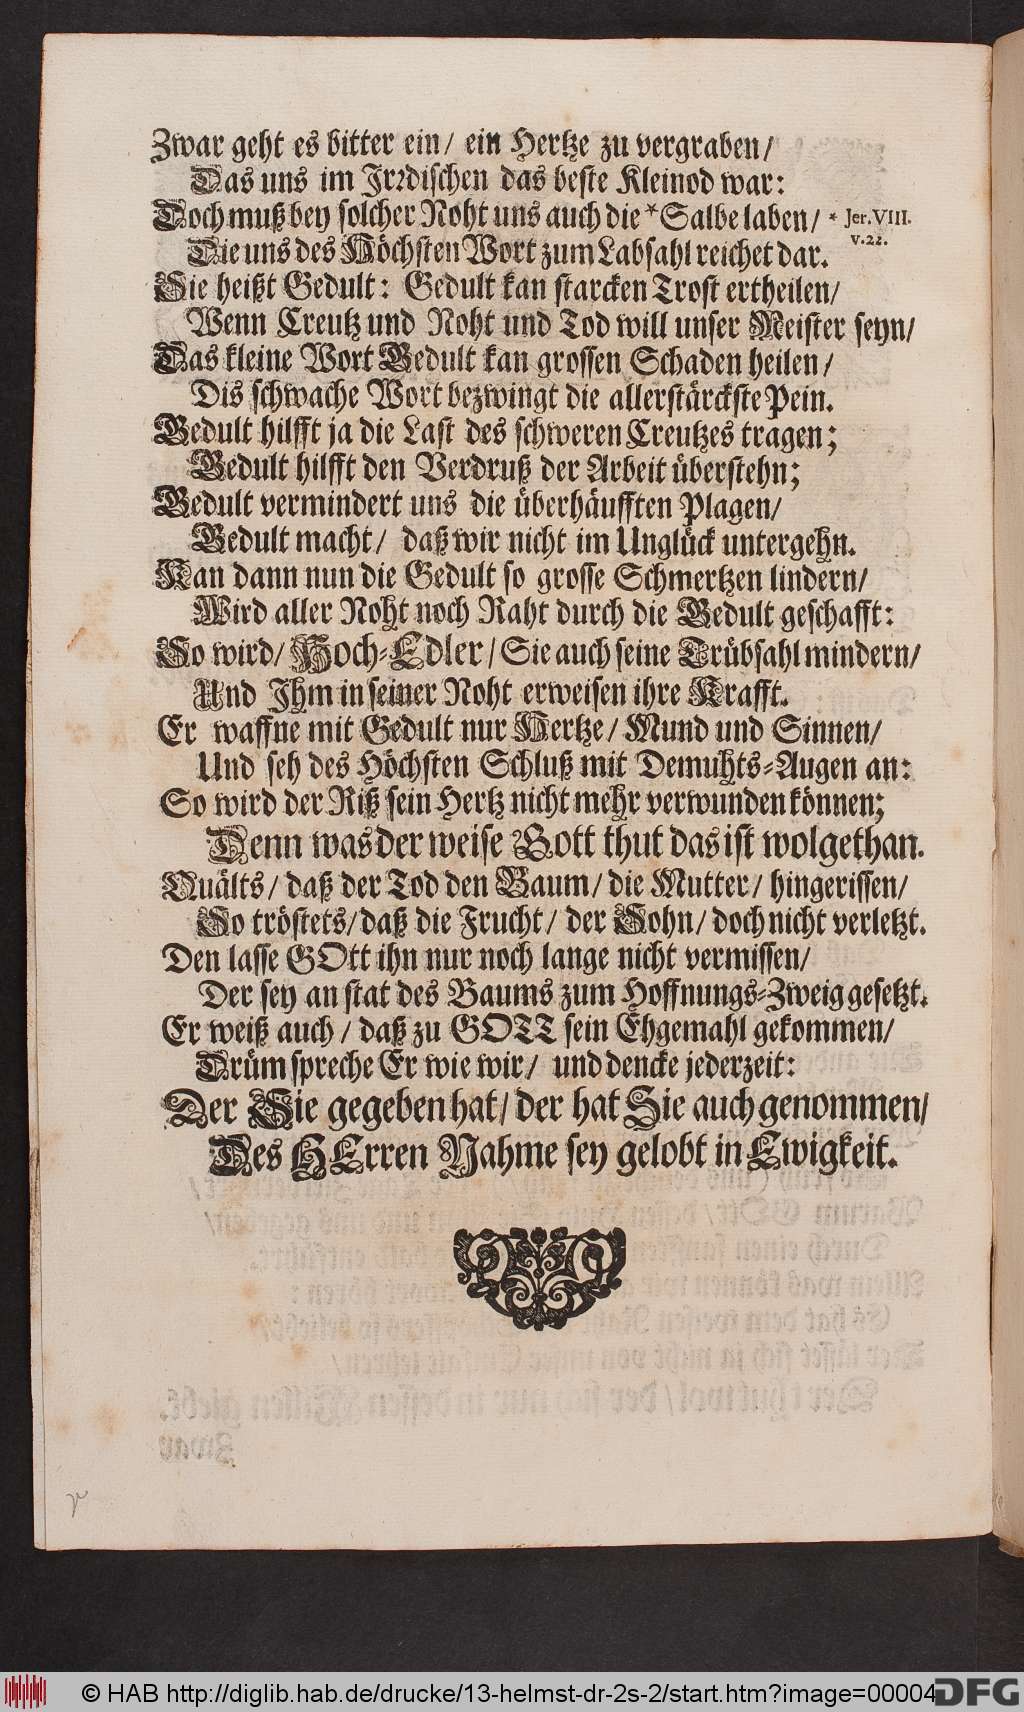 Zwar geht es bitter ein/ ein Hertze zu vergraben/
Das uns im Irrdischen das beste Kleinod war:
Doch muß bey solcher Noht uns auch die * Salbe laben/ * Jer. VIII.
v. 22.
Die uns des Höchsten Wort zum Labsahl reichet dar.
Sie heißt Gedult: Gedult kan starcken Trost ertheilen/
Wenn Creutz und Noht und Tod will unser Meister seyn/
Das kleine Wort Gedult kan grossen Schaden heilen/
Dis schwache Wort bezwingt die allerstärckste Pein.
Gedult hilfft ja die Last des schweren Creutzes tragen;
Gedult hilfft den Verdruß der Arbeit überstehn;
Gedult vermindert uns die überhäufften Plagen/
Gedult macht/ daß wir nicht im Unglück untergehn.
Kan dann nun die Gedult so grosse Schmertzen lindern/
Wird aller Noht noch Raht durch die Gedult geschafft:
So wird/ Hoch-Edler/ Sie auch seine Trübsahl mindern/
Und Ihm in seiner Noht erweisen ihre Krafft.
Er waffne mit Gedult nur Hertze/ Mund und Sinnen/
Und seh des Höchsten Schluß mit Demuhts-Augen an:
So wird der Riß sein Hertz nicht mehr verwunden können;
Denn was der weise Gott thut das ist wolgethan.
Quälts/ daß der Tod den Baum/ die Mutter/ hingerissen/
So tröstets/ daß die Frucht/ der Sohn/ doch nicht verletzt.
Den lasse GOtt ihn nur noch lange nicht vermissen/
Der sey an stat des Baums zum Hoffnungs-Zweig gesetzt.
Er weiß auch/ daß zu GOTT sein Ehgemahl gekommen/
Drüm spreche Er wie wir/ und dencke jederzeit:
Der Sie gegeben hat/ der hat Sie auch genommen/
Des HErren Nahme sey gelobt in Ewigkeit.
© HAB http://diglib.hab.de/drucke/13-helmst-dr-2s-2/start.htm?image=00004
DFG